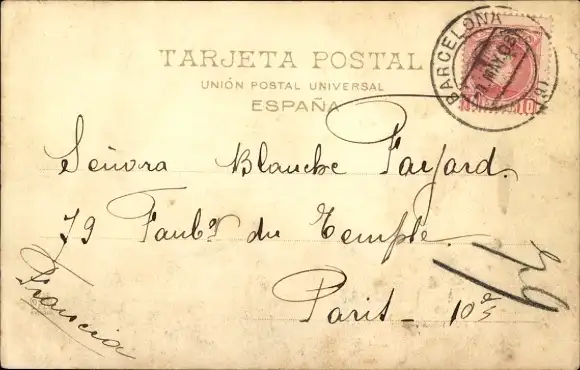 TARJETA POSTAL
UNIÓN POSTAL UNIVERSAL
ESPAÑA
BARCELONA
10
Señora Blanche Fayard.
79 Faub.g du Temple.
Paris - 10e
Francia